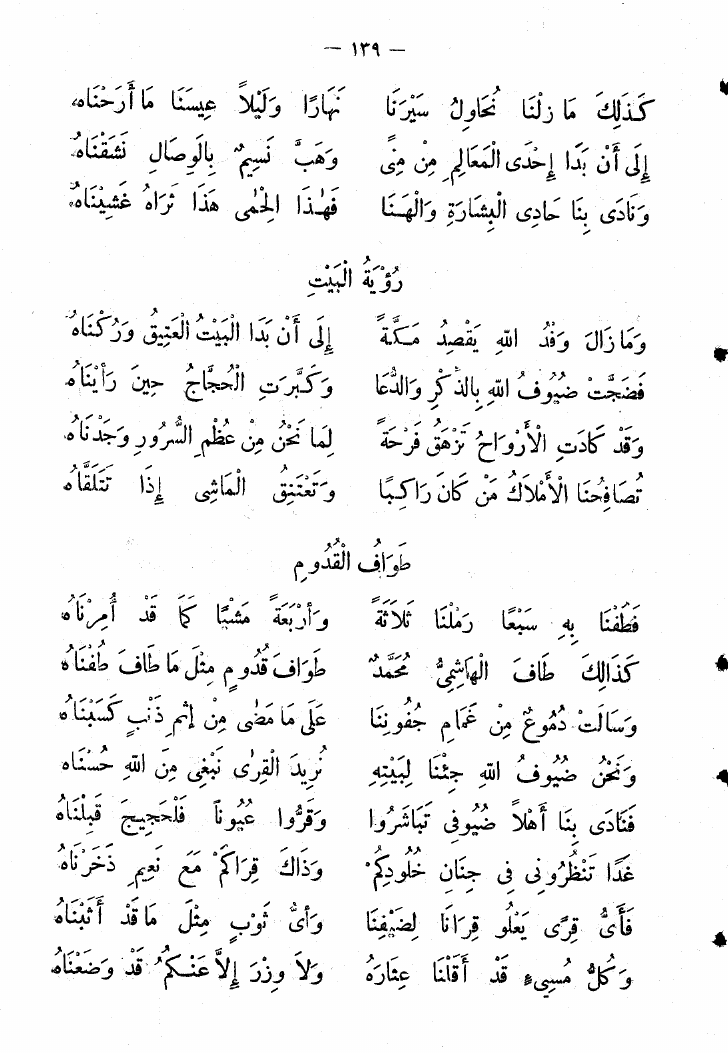 — ١٣٩ —
كَذَلِكَ مَا زِلْنَا نُحَاوِلُ سَيْرَنَا نَهَارًا وَلَيْلاً عِيسَنَا مَا أَرَحْنَاهُ
إِلَى أَنْ بَدَا إِحْدَى الْمَعَالِمِ مِنْ مِنًى وَهَبَّ نَسِيمٌ بِالْوِصَالِ نَشَقْنَاهُ
وَنَادَى بِنَا حَادِى الْبِشَارَةِ وَالْهَنَا فَهٰذَا الْحِمٰى هٰذَا ثَرَاهُ غَشِينَاهُ
رُؤْيَةُ الْبَيْتِ
وَمَا زَالَ وَفْدُ اللهِ يَقْصِدُ مَكَّةً إِلَى أَنْ بَدَا الْبَيْتُ الْعَتِيقُ وَرُكْنَاهُ
فَضَجَّتْ ضُيُوفُ اللهِ بِالذِّكْرِ وَالدُّعَا وَكَبَّرَتِ الْحُجَّاجُ حِينَ رَأَيْنَاهُ
وَقَدْ كَادَتِ الْأَرْوَاحُ تَزْهَقُ فَرْحَةً لِمَا نَحْنُ مِنْ عُظْمِ السُّرُورِ وَجَدْنَاهُ
تُصَافِحُنَا الْأَمْلَاكُ مَنْ كَانَ رَاكِبًا وَتَعْتَنِقُ الْمَاشِى إِذَا تَتَلَقَّاهُ
طَوَافُ الْقُدُومِ
فَطُفْنَا بِهِ سَبْعًا رَمَلْنَا ثَلَاثَةً وَأَرْبَعَةً مَشْيًا كَمَا قَدْ أُمِرْنَاهُ
كَذَالِكَ طَافَ الْهَاشِمِىُّ مُحَمَّدٌ طَوَافَ قُدُومٍ مِثْلَ مَا طَافَ طُفْنَاهُ
وَسَالَتْ دُمُوعٌ مِنْ غَمَامِ جُفُونِنَا عَلَى مَا مَضٰى مِنْ إِثْمِ ذَنْبٍ كَسَبْنَاهُ
وَنَحْنُ ضُيُوفُ اللهِ جِئْنَا لِبَيْتِهِ نُرِيدُ الْقِرٰى نَبْغِى مِنَ اللهِ حُسْنَاهُ
فَنَادَى بِنَا أَهْلاً ضُيُوفِى تَبَاشَرُوا وَقَرُّوا عُيُوناً فَلْحَجِيجَ قَبِلْنَاهُ
غَدًا تَنْظُرُونِى فِى جِنَانِ خُلُودِكُمْ وَذَاكَ قِرَاكُمْ مَعْ نَعِيمٍ ذَخَرْنَاهُ
فَأَىُّ قِرًى يَعْلُو قِرَانَا لِضَيْفِنَا وَأَىُّ ثَوْبٍ مِثْلَ مَا قَدْ أَثَبْنَاهُ
وَكُلُّ مُسِىءٍ قَدْ أَقَلْنَا عِثَارَهُ وَلاَ وِزْرَ إِلاَّ عَنْكُمُ قَدْ وَضَعْنَاهُ